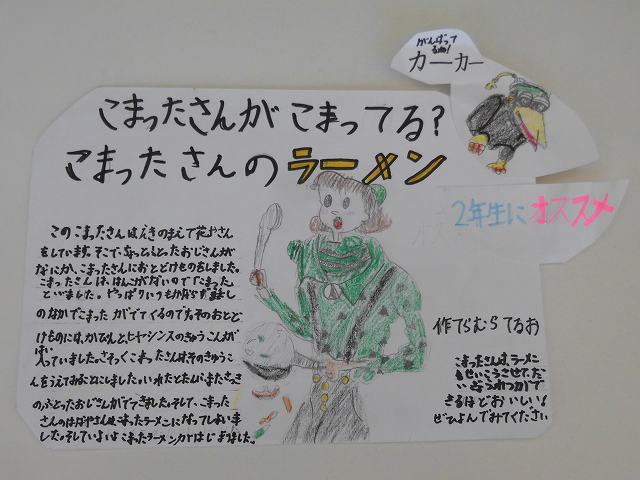 がんばって
るね!
カーカー
こまったさんがこまってる?
こまったさんのラーメン
2年生にオススメ
このこまったさんはえきのまえで花やさん
をしています。そこで、ちょっとふとったおじさんが
なにか、こまったさんにおとどけものをしました。
こまったさんは、はんこがないので「こまった」
といいました。やっぱりいつもかならず話し
のなかでこまったがでてくるのですよそのおとど
けものには、かびんと、ヒヤシンスのきゅうこんが
はい
入っていました。さっそくこまったさんはそのきゅうこ
んをうえてみることにしました。いれたとたん、またさっき
のふとったおじさんがでてきました。そして、こまった
さんのはなやさんは、こまったラーメンになってしまいま
した。そしていよいよこまったラーメン力がはじまりました。
作てらむら てるお
こまったさんは、ラーメン
をせいこうさせて、だ
い
きるほどおいしい!
ぜひよんでみてください